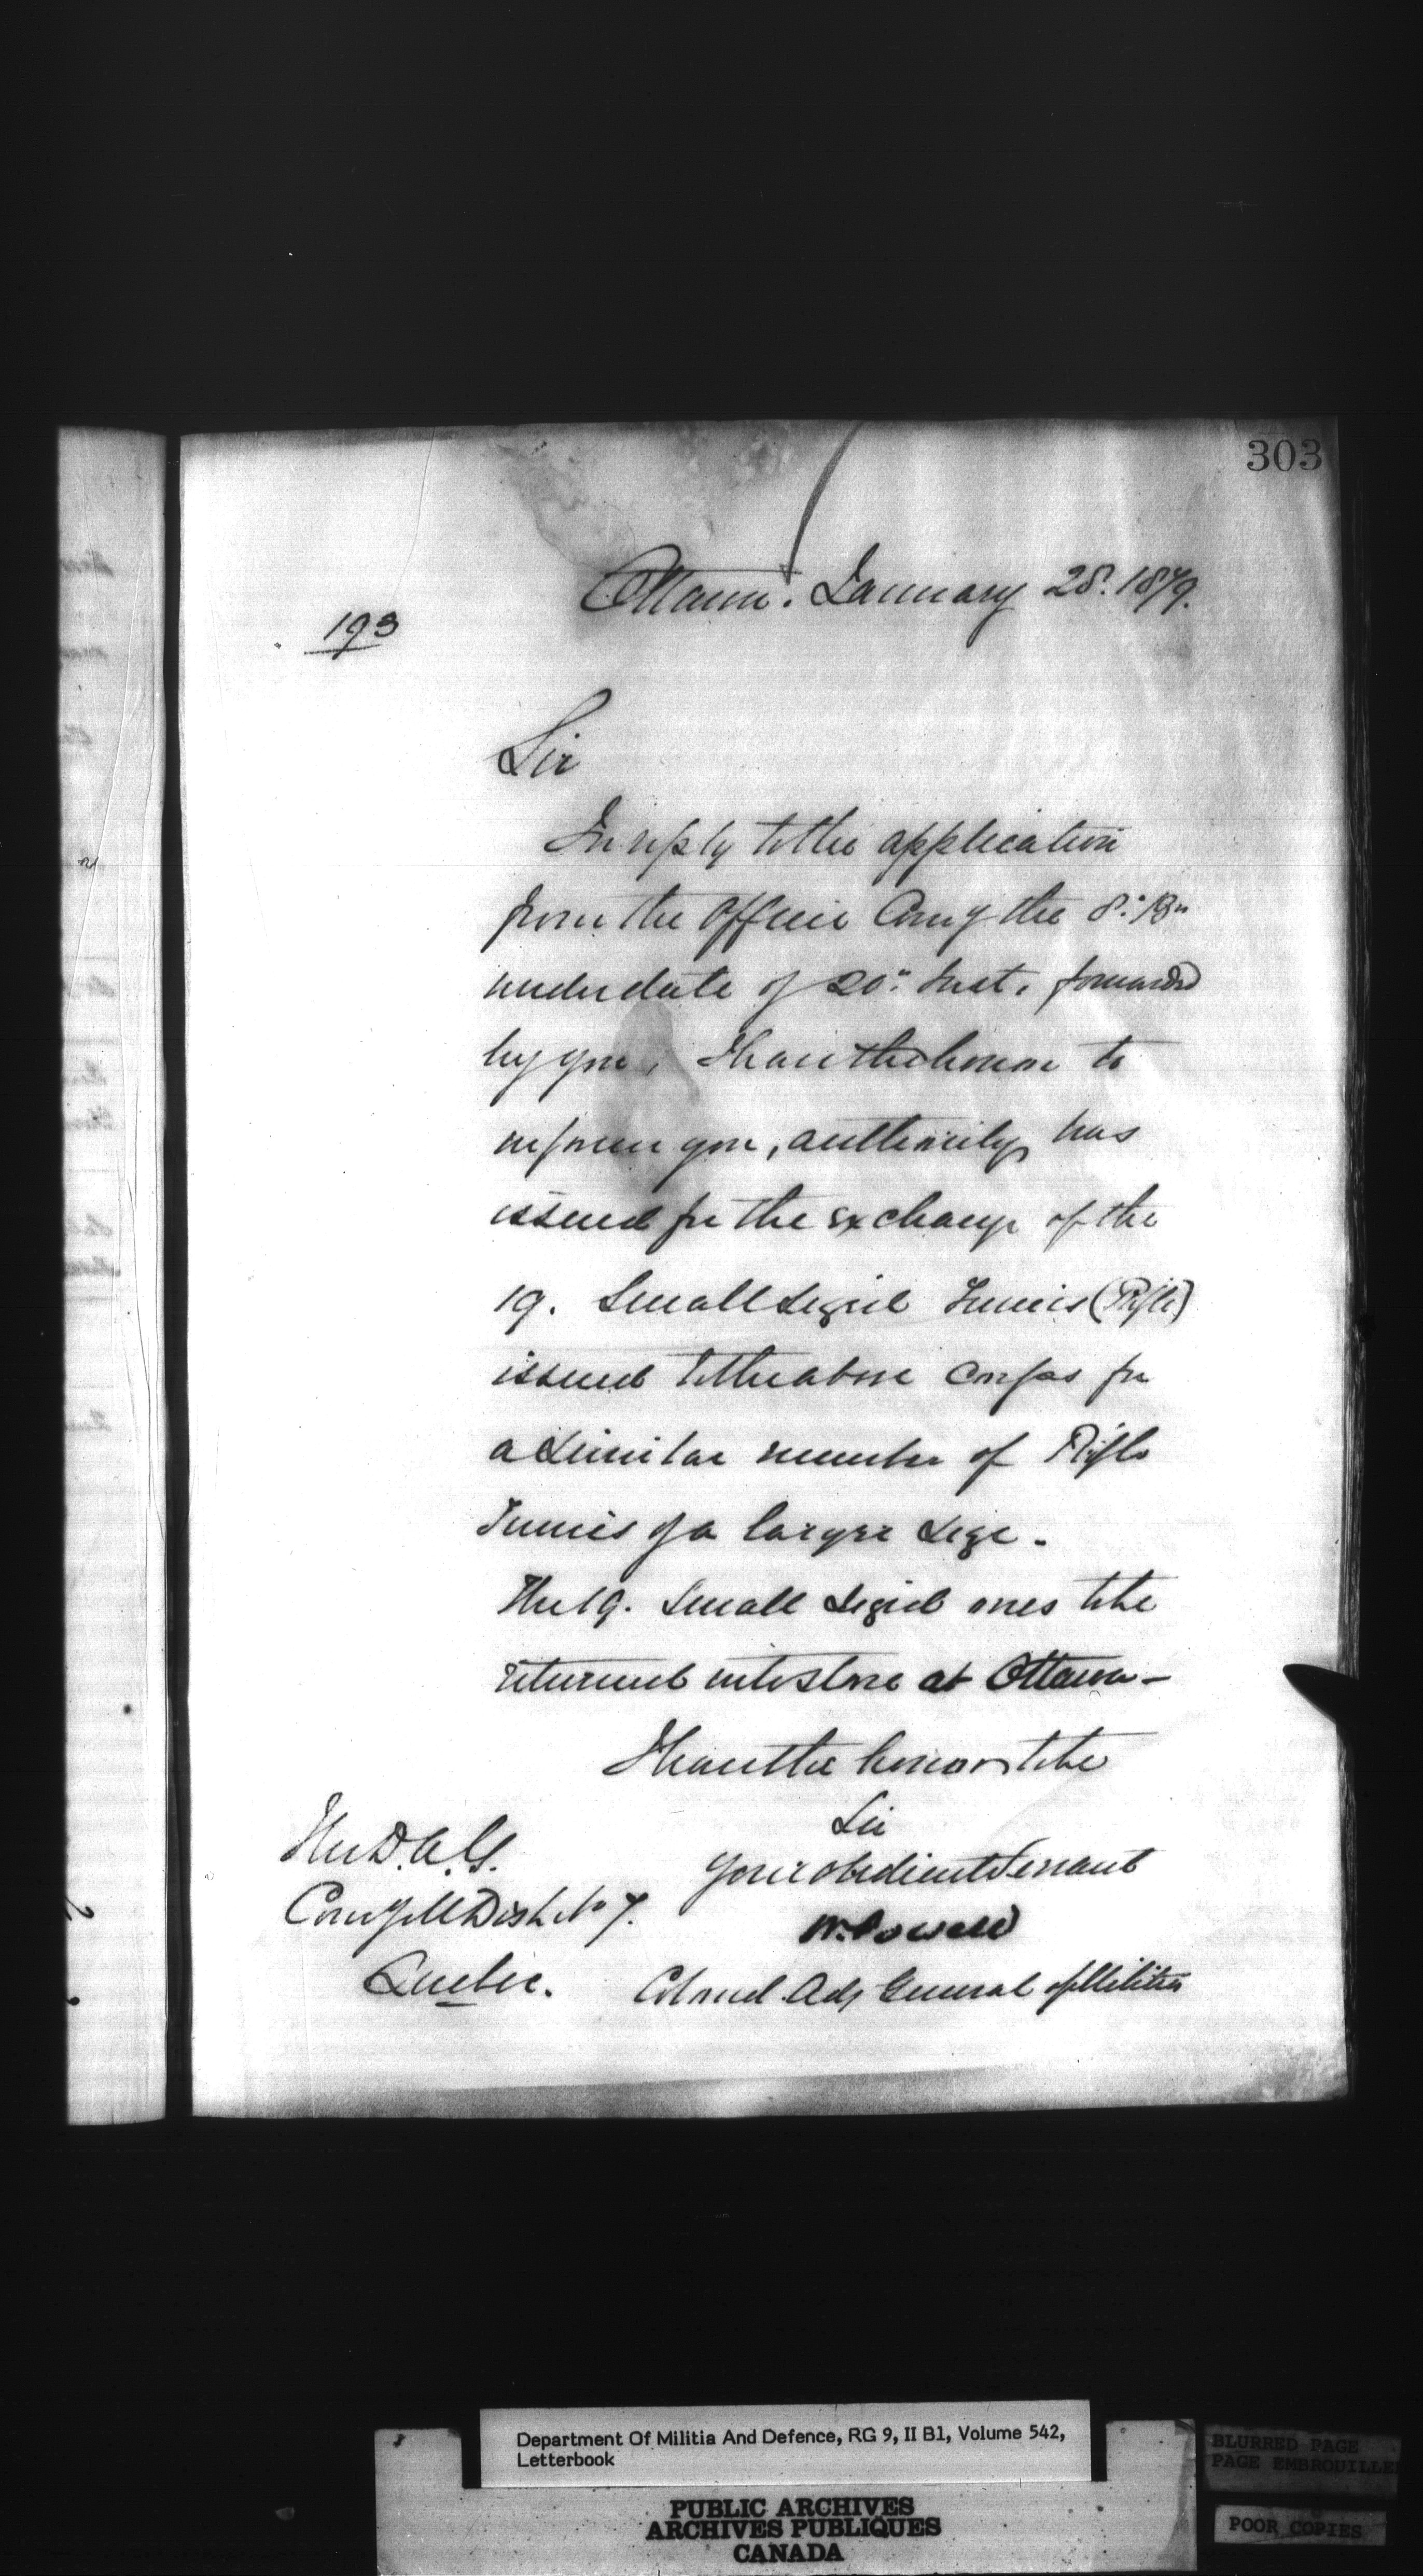 303
Ottawa. January 28. 1879.
193
Sir
In reply to the application
from the Officer Comg the 8: Bn
under date of 20" Inst. forwarded
by you, I have the honor to
inform you, authority has
issued for the exchange of the
19. Small sized Tunics (Rifle)
issued to the above Corps for
a similar number of Rifle
Tunics of a larger size.
The 19. Small sized ones to be
returned into store at Ottawa -
I have the honor to be
Sir
Your obedient Servant
W. Powell
Colonel Adj General of Militia
The D.A.G.
Comg M Dist No 7.
Quebec.
Department Of Militia And Defence, RG 9, II B1, Volume 542,
Letterbook
PUBLIC ARCHIVES
ARCHIVES PUBLIQUES
CANADA
BLURRED PAGE
PAGE EMBROUILLE
POOR COPIES